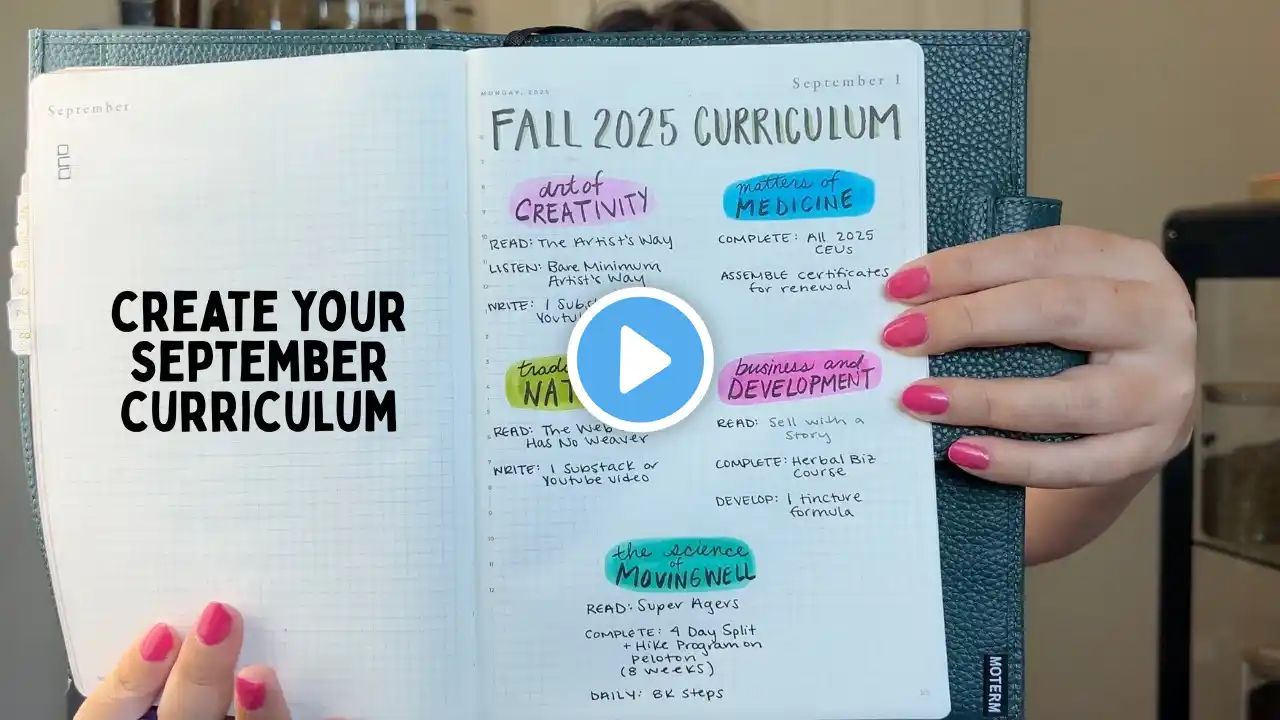 September
MONDAY, 2025
September 1
FALL 2025 CURRICULUM
art of
CREATIVITY
READ: The Artist's Way
LISTEN: Bare Minimum
Artist's Way
WRITE: 1
matters of
MEDICINE
COMPLETE: All 2025
CEUs
ASSEMBLE certificates
for renewal
CREATE YOUR
SEPTEMBER
CURRICULUM
READ: The Web
Has No Weaver
WRITE: 1 Substack or
Youtube video
business and
DEVELOPMENT
READ: Sell with a
Story
COMPLETE: Herbal Biz
Course
DEVELOP: 1 tincture
formula
the science
of
MOVINGWELL
READ: Super Agers
COMPLETE: 4 Day Split
+ Hike Program on
peloton
(8 weeks)
DAILY: 8K Steps
MOTERM